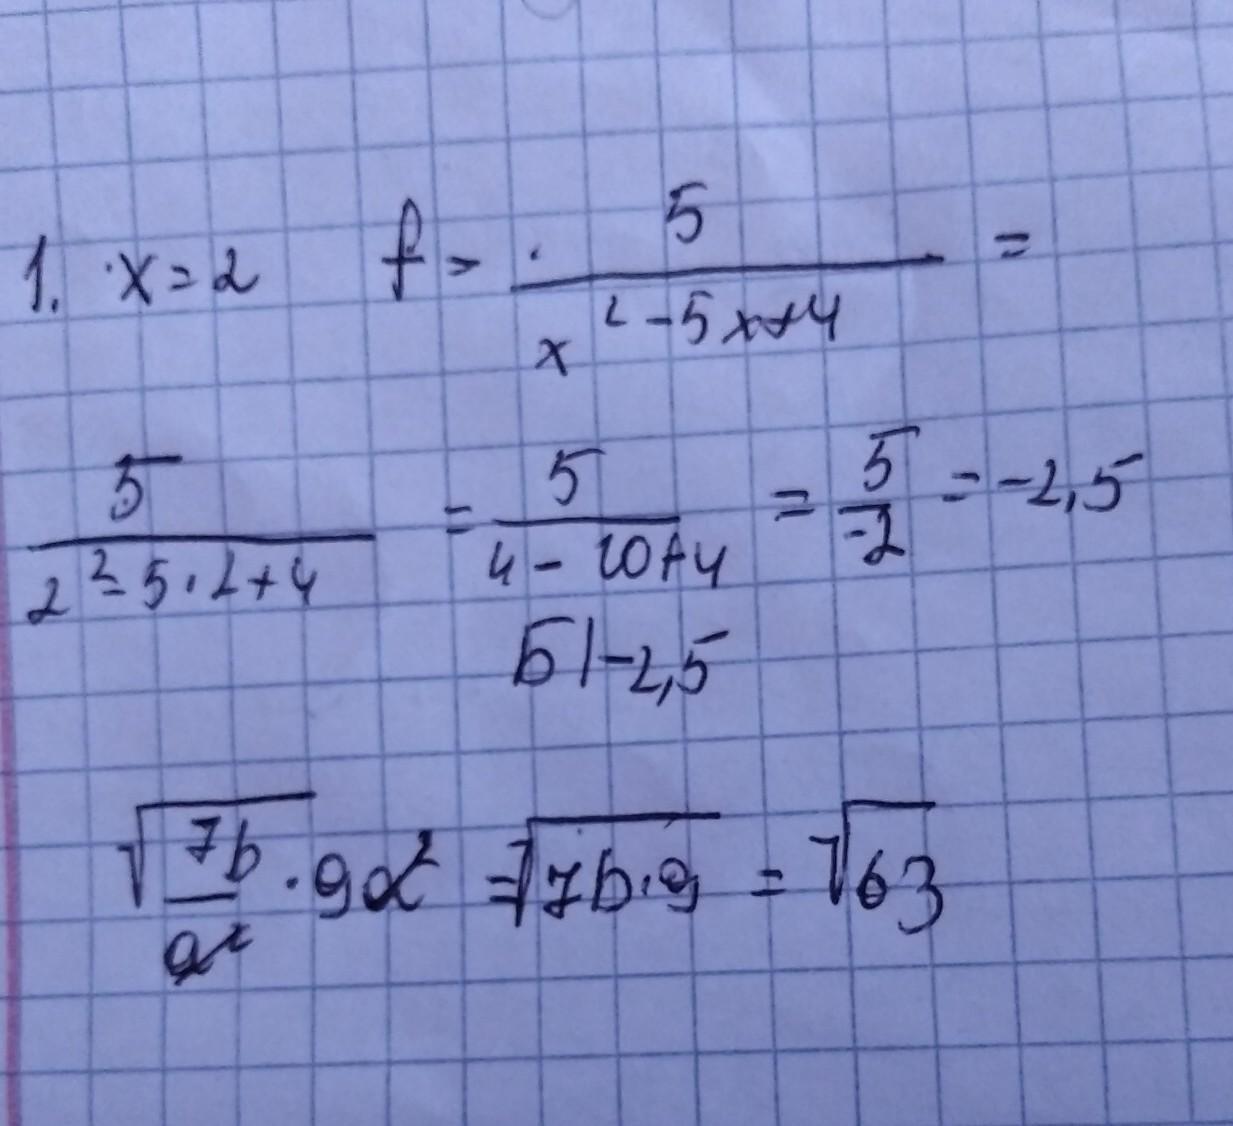 1. x = 2 f = 5/(x² - 5x + 4) =
5/(2² - 5 · 2 + 4) = 5/(4 - 10 + 4) = 5/-2 = -2,5
Б | -2,5
√(7b/a²) · 9a² = √(7b · 9) = √63